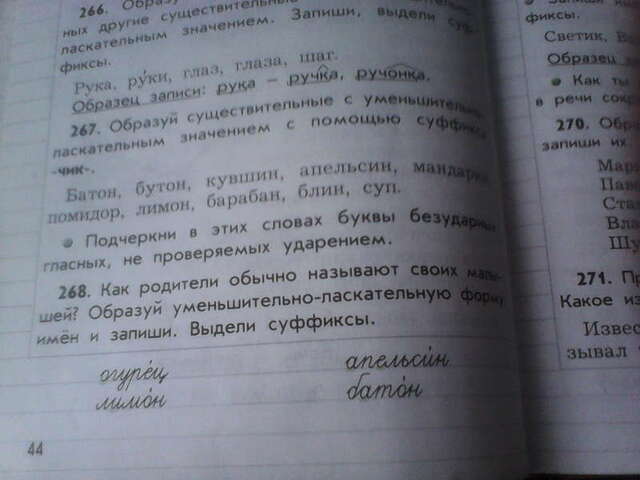 266. Образу
ных другие существительные
ласкательным значением. Запиши, выдели суф-
фиксы.
Рука, ру́ки, глаз, глаза, шаг.
Образец записи: рука – ручка, ручонка.
267. Образуй существительные с уменьшительно-
ласкательным значением с помощью суффикса
-чик-.
Батон, бутон, кувшин, апельсин, мандарин,
помидор, лимон, барабан, блин, суп.
• Подчеркни в этих словах буквы безударных
гласных, не проверяемых ударением.
268. Как родители обычно называют своих малы-
шей? Образуй уменьшительно-ласкательную форму
имён и запиши. Выдели суффиксы.
огуре́ц апельси́н
лимо́н бато́н
44
фиксы.
Светик, В
Образец
• Как ты
в речи
270. Обр
запиши их
Мар
Пав
Ста
Вла
Шу
271. П
Какое из
Извес
зывал